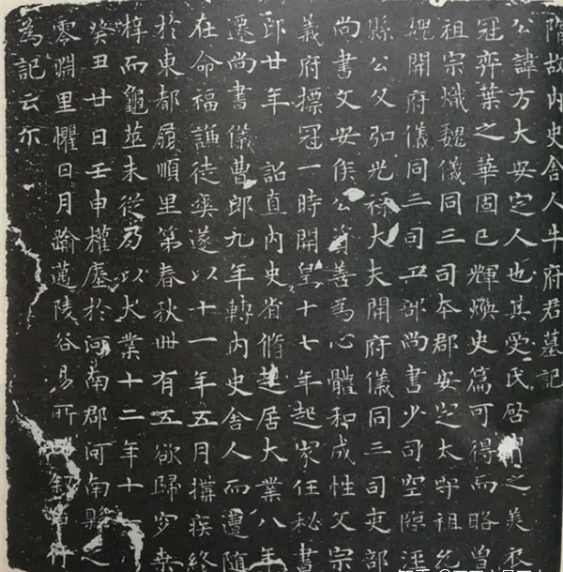 隋故内史舍人牛府君墓記
公諱方大安定人也其受氏啓之美衣
冠弈葉之華固已輝煥史篇可得而略曾
祖宗熾魏儀同三司本郡安定太守祖允
魏開府儀同三司工部尚書少司空臨涇
縣公父弘光祿大夫開府儀同三司吏部
尚書文安侯公資善為心體和成性父宗
義府摽冠一時開皇十七年起家任秘書
郎廿年 詔直内史省脩起居大業八年
遷尚書儀曹郎九年轉内史舍人而遭隨
在命福謙徒爽遂以十一年五月搆疾終
於東都履順里第春秋卌有五欲歸窆桒
梓而龜筮未從乃以大業十二年十
癸丑廿日壬申權於河南郡河南縣之
零淵里懼日月踰邁陵谷易所
為記云尒